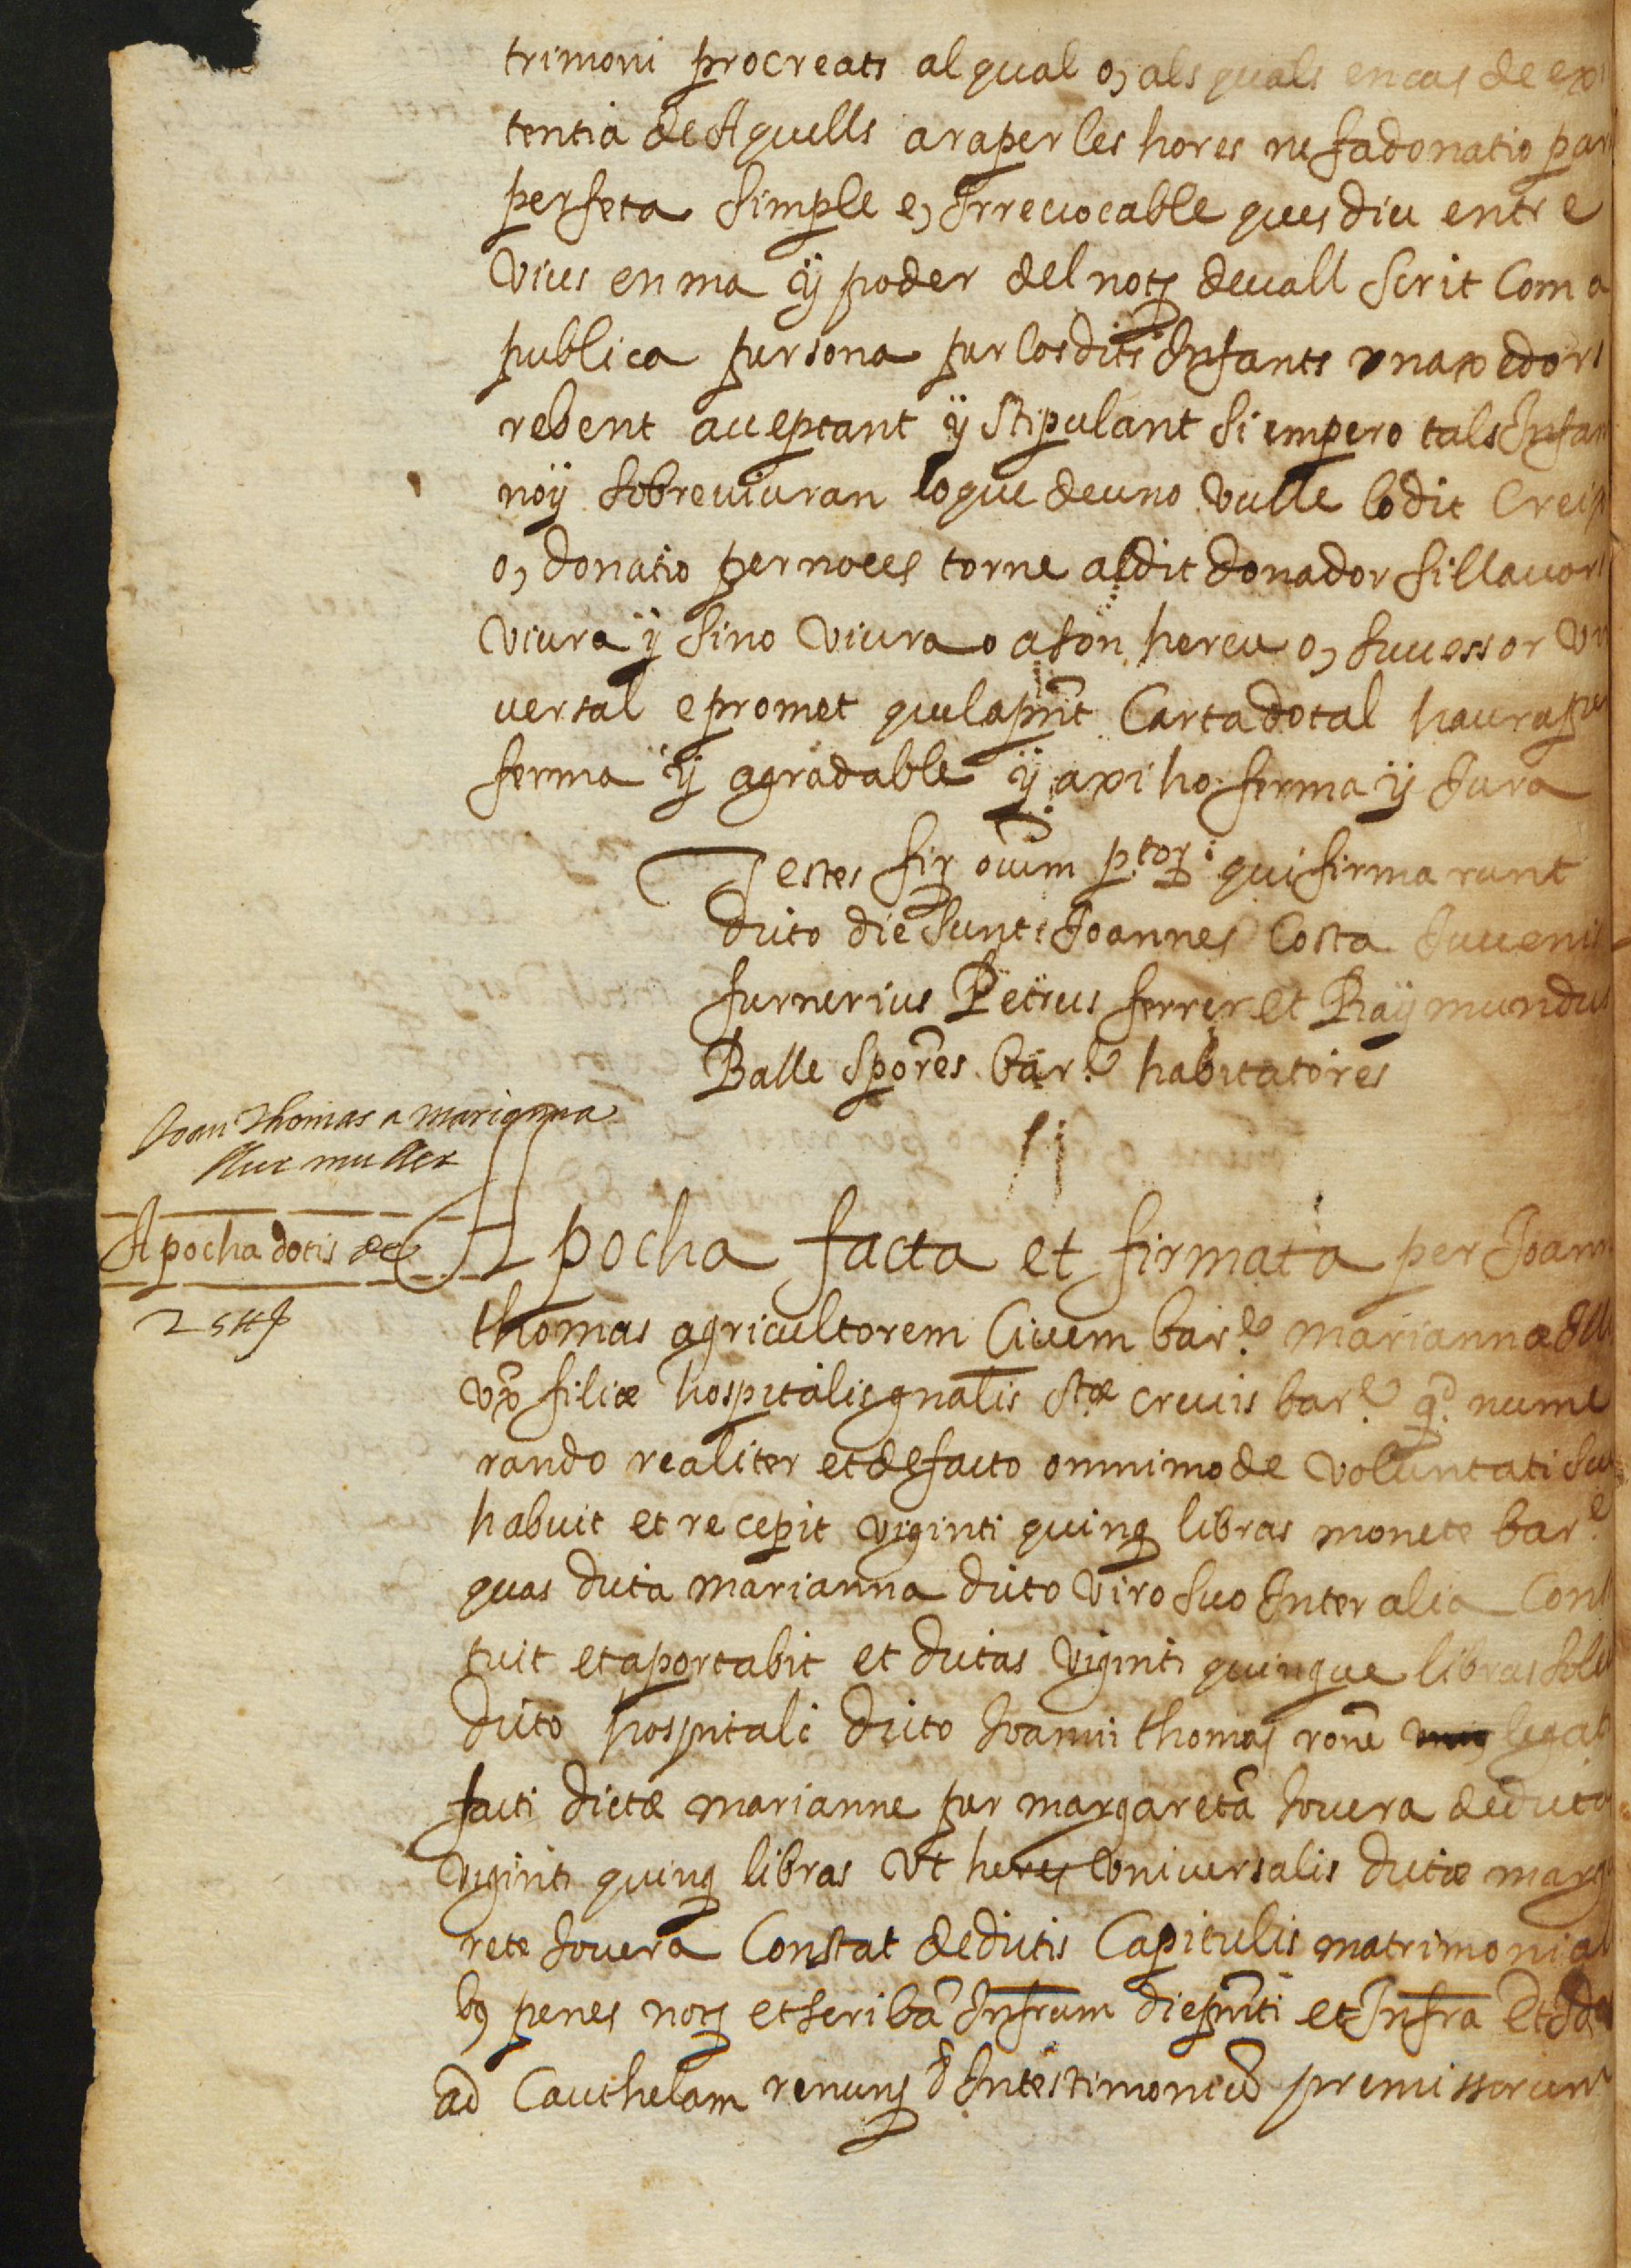 trimoni procreats al qual o, als quals en cas de exi
tentia de Aquells ara per les hores ne fa donatio pur
perfeta simple e, Irreuocable ques diu entre
vius en ma ÿ poder del notʒ deuall scrit Com a
publica persona per los dits Infants naxedors
rebent acceptant ÿ stipulant si empero tals Infan
noÿ sobreuiuran lo que deu no vulle lo dit Creix
o, donatio per noces torne al dit donador si llauors
viura ÿ si no viura o a son hereu o, successor vni
uersal e promet que la pnt Carta dotal haura per
ferma ÿ agradable ÿ axi ho ferma ÿ Jura
Testes fir oium ptor qui firmarunt
dicto die sunt Joannes Costa Juuenis
furnerius Petrus ferrer et Raÿmundus
Balle spores bar.e habitatores
Joan Thomas a marianna
sa muller
Apocha dotis de
25 ₶
Apocha facta et firmata per Joann
thomas agricultorem Ciuem bar.e mariannæ
vx filiæ hospitalis gnalis Stæ crucis bar.e q.d nume
rando realiter et de facto omnimode voluntati sue
habuit et recepit viginti quinqʒ libras monete bar.e
quas dicta marianna dicto viro suo Inter alia Consti
tuit et aportabit et dictas viginti quinque libras
dicto hospitali dicto Joanni thomas rone legat
facti dictæ marianne per margareta Jouera de dictis
viginti quinqʒ libras vt heres vniuersalis dictæ marga
rete Jouera Constat de dictis Capitulis matrimoniali
bʒ penes notʒ et scriba Infrum die pnti et Infra Et Ideo
ad Cauthelam renunʒ & In testimonium premissorum